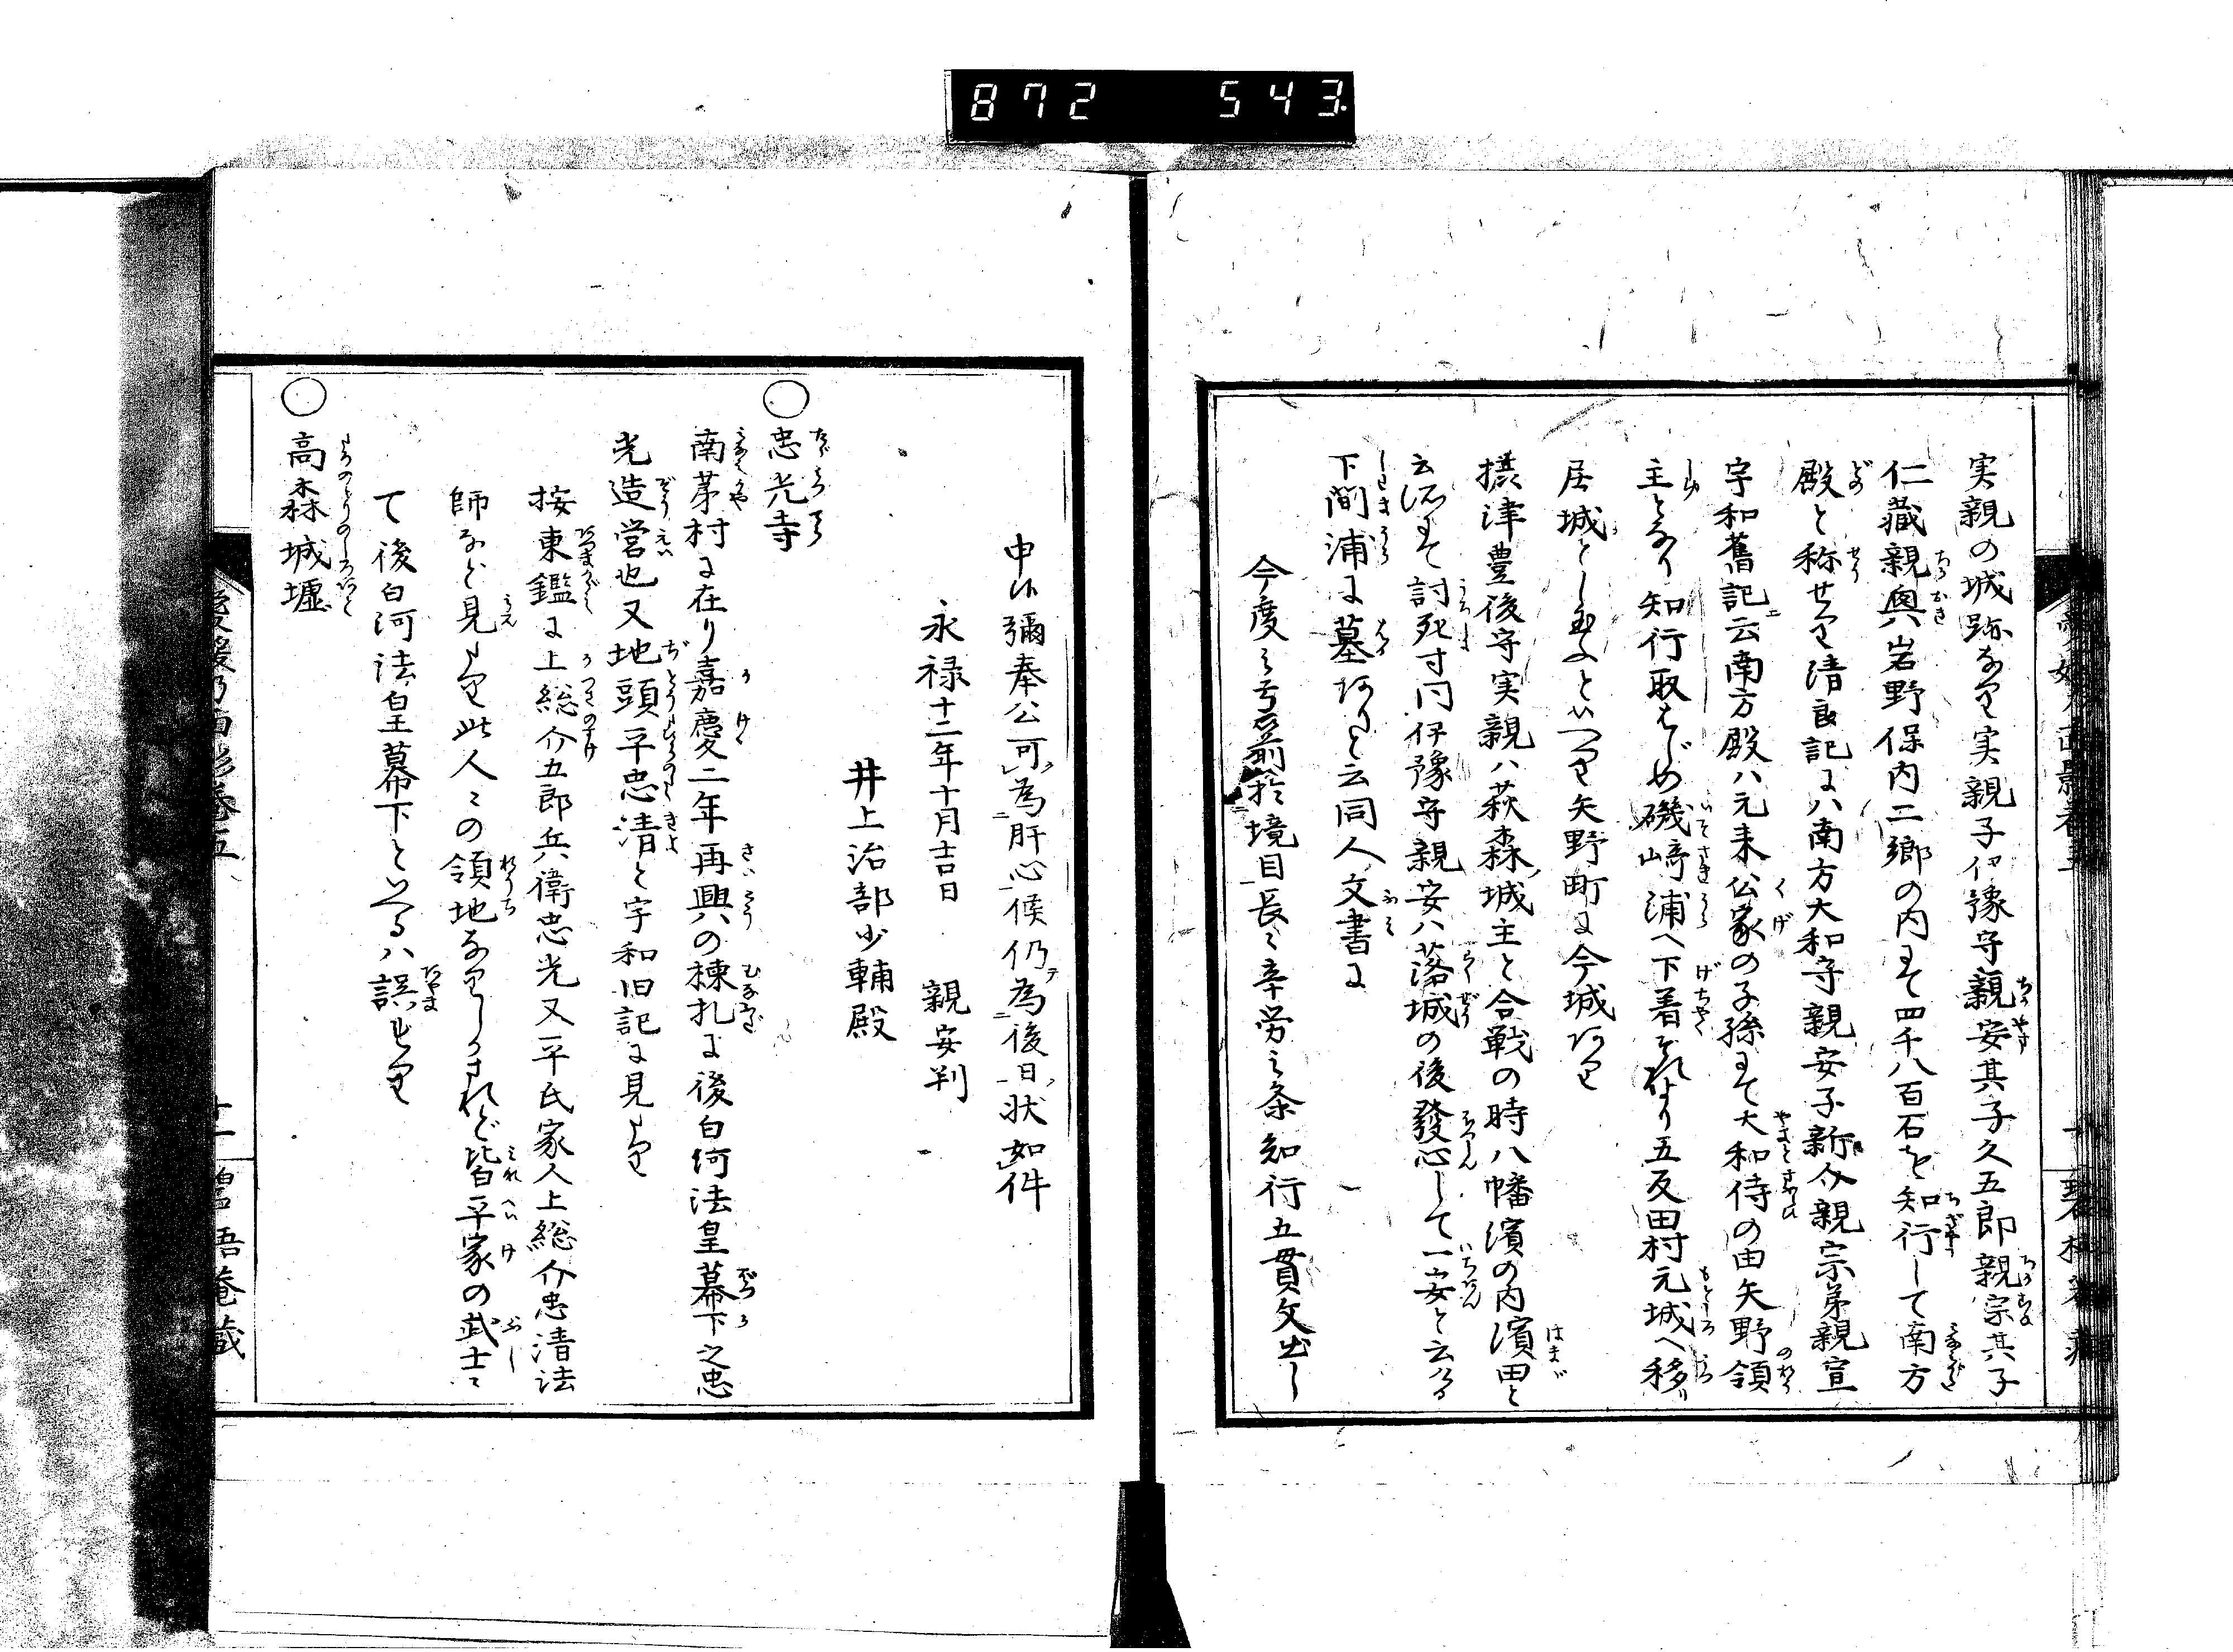 872 543.
実親の城跡なり実親子伊豫守親安其子久五郎親宗其子
仁藏親興岩野保内二郷の内にて四千八百石を知行して南方
殿と称せり清良記に八南方大和守親安子新介親宗弟親宣
宇和舊記ニ云南方殿ハ元来公家の子孫にて大和侍の由矢野領
主となり知行取はじめ磯崎浦へ下着それより五反田村元城へ移リ
居城としといへり矢野町に今城あり
攝津豊後守実親ハ萩森城主と合戦の時八幡濱の内濱田と
云所にて討死す同伊豫守親安ハ落城の後發心して一安と云ける
下間浦に墓ありと云同人文書に
今度之於境目長〻辛労之条知行五貫文出し
申候彌奉公可為肝心候仍為後日状如件
永禄十二年十月吉日 親安判
井上治部少輔殿
○忠光寺
南茅村に在り嘉慶二年再興の棟札に後白河法皇幕下之忠
光造営也又地頭平忠清と宇和旧記に見えたり
按東鑑に上総介五郎兵衛忠光又平氏家人上総介忠清法
師など見えたり此人〻の領地なりしかされど皆平家の武士に
て後白河法皇幕下とせるハ誤もせり
○高森城墟
愛媛乃面影巻五
十一